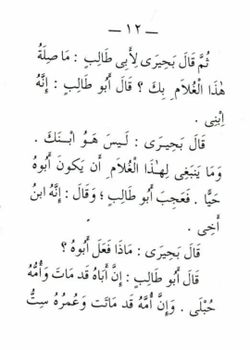 — ١٢ —
ثُمَّ قَالَ بَحِيرَى لِأَبِي طَالِبٍ : مَا صِلَةُ
هٰذَا الْغُلَامِ بِكَ ؟ قَالَ أَبُو طَالِبٍ : إِنَّهُ
اِبْنِي .
قَالَ بَحِيرَى : لَيْسَ هَوُ ابْنَكَ .
وَمَا يَنْبَغِي لِهٰذَا الْغُلَامِ أَن يَكُونَ أَبُوهُ
حَيًّا . فَعَجِبَ أَبُو طَالِبٍ ؛ وَقَالَ : إِنَّهُ ابنُ
أَخِي .
قَالَ بَحِيرَى : مَاذَا فَعَلَ أَبُوهُ ؟
قَالَ أَبُو طَالِبٍ : إِنَّ أَبَاهُ قَد مَاتَ وَأُمُّهُ
حُبْلَى . وَإِنَّ أُمَّهُ قَد مَاتَت وَعُمرُهُ سِتُّ